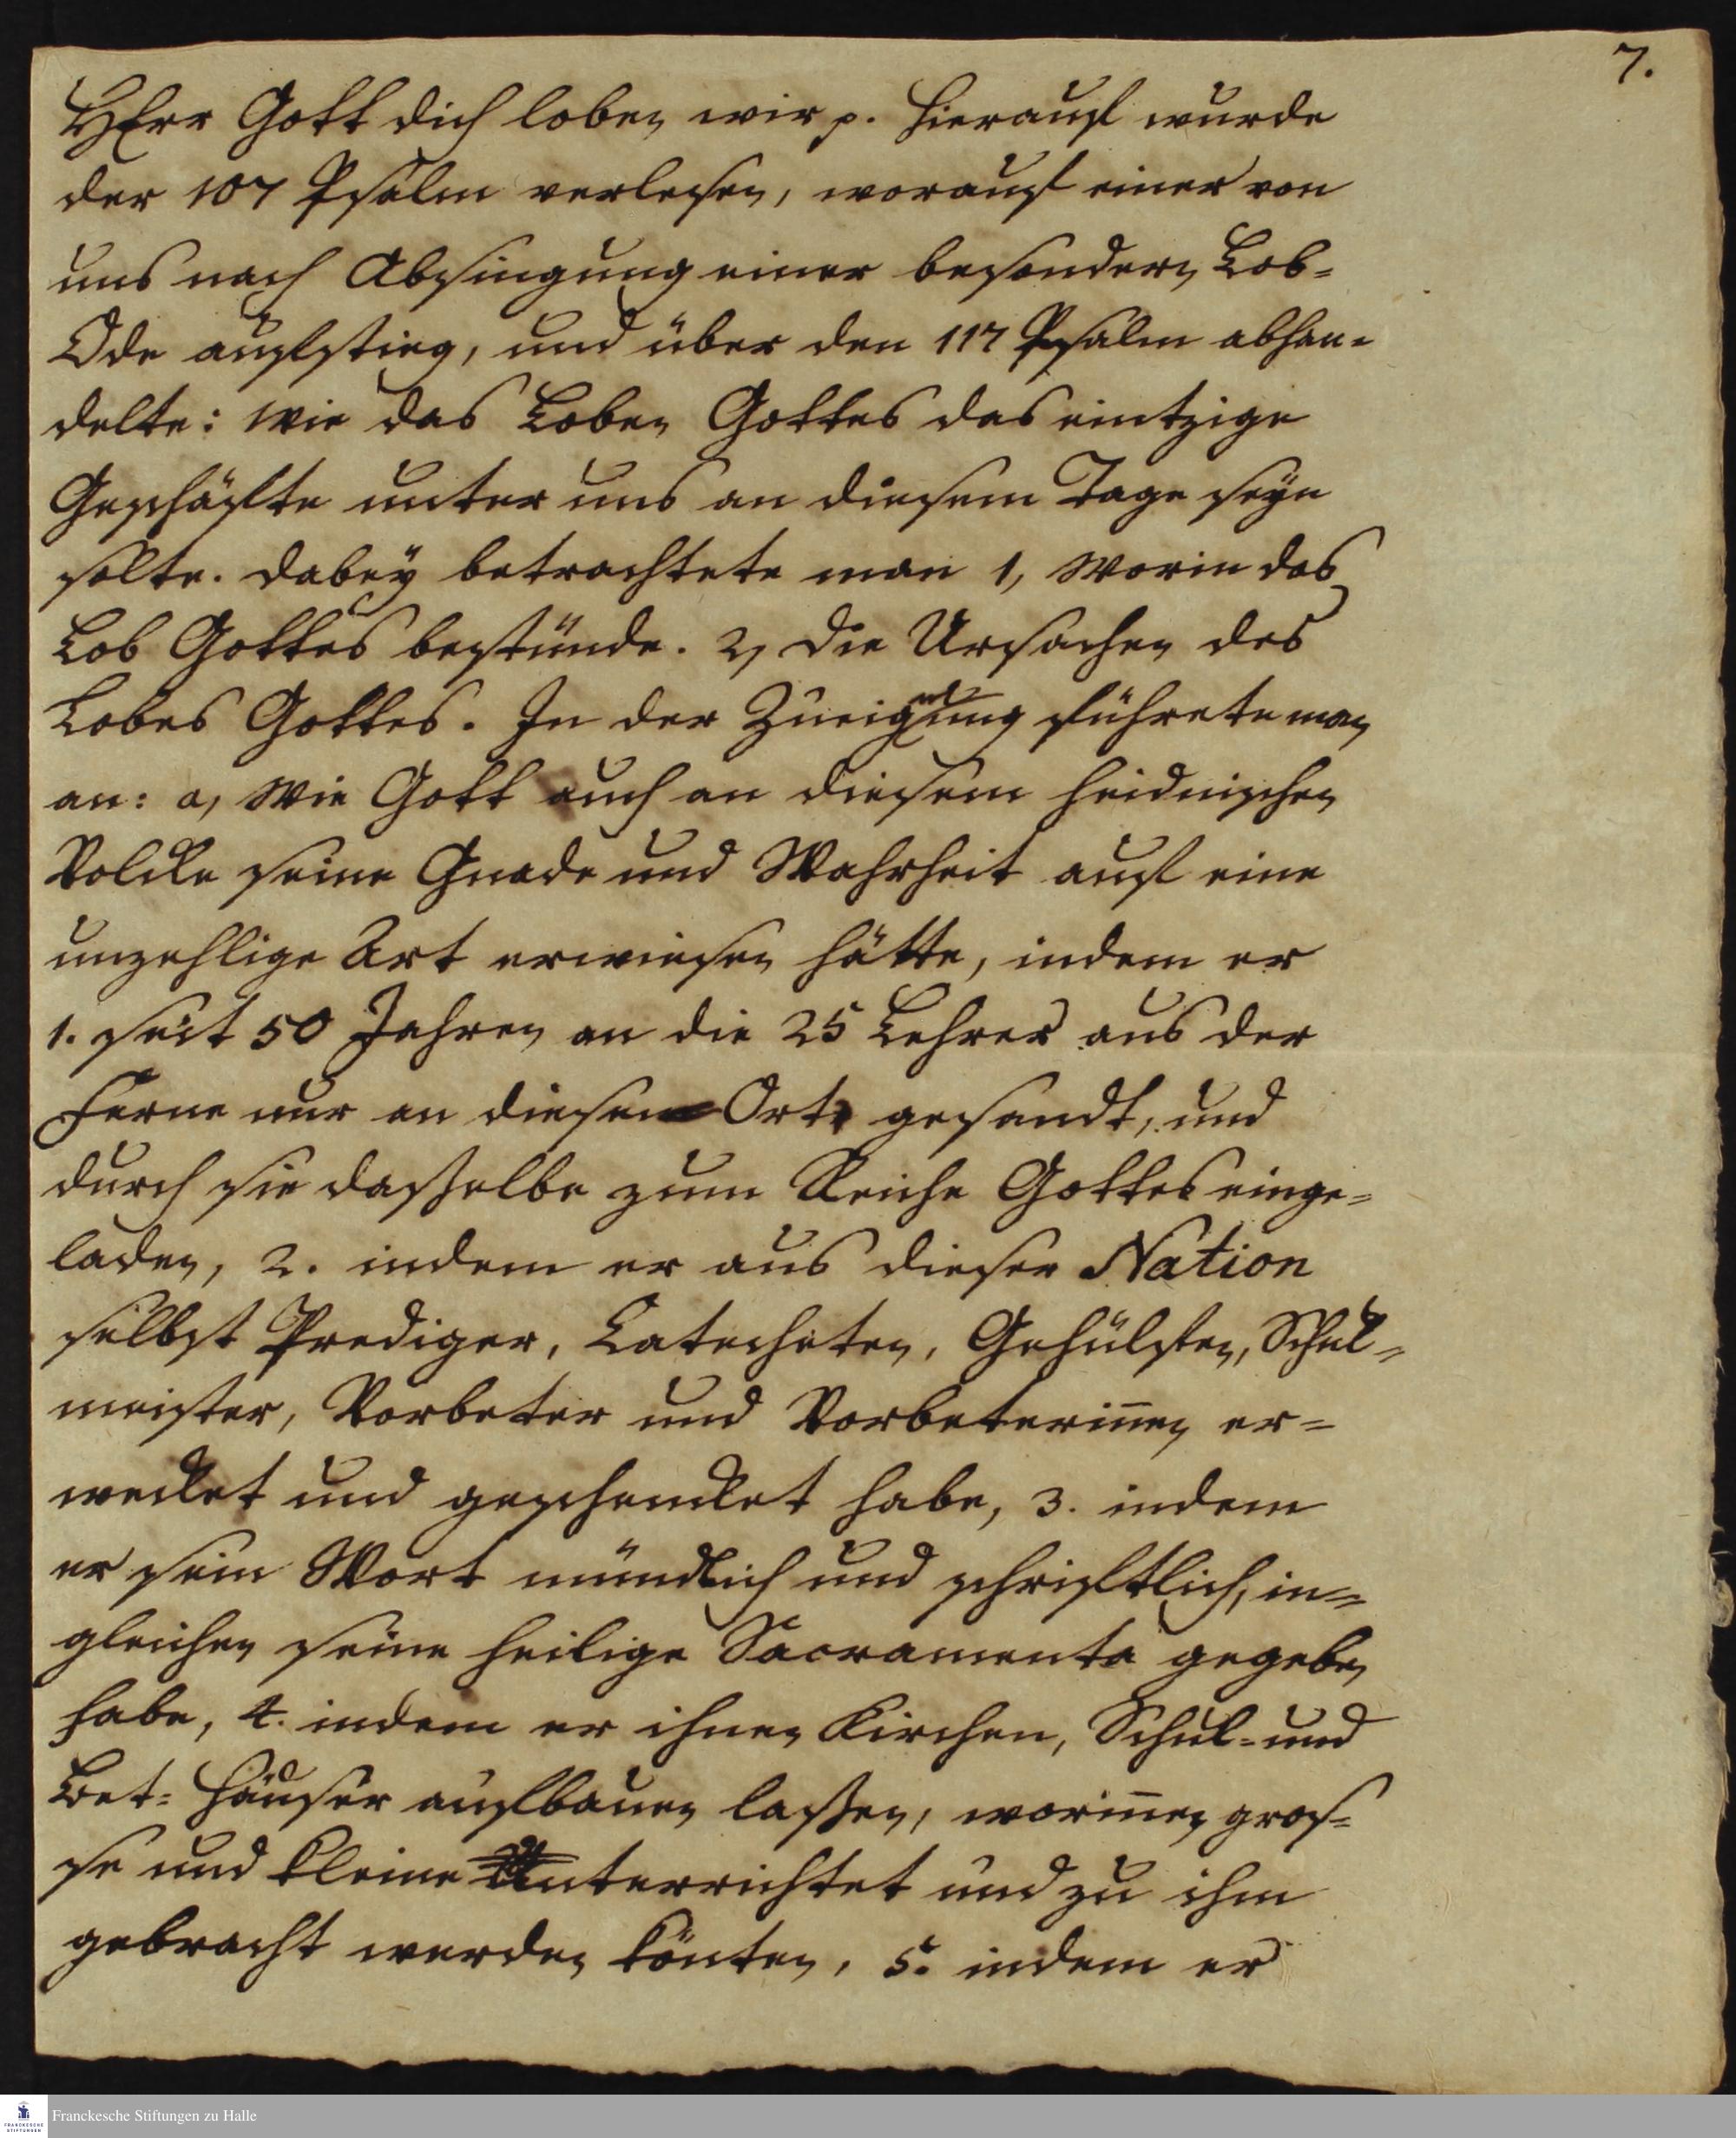 7.
HErr Gott dich loben wir p. Hierauf wurde
der 107 Psalm verlesen, worauf einer von
uns nach Absingung einer besondern Lob-
Ode aufstieg, und über den 117 Psalm abhan-
delte: Wie das Loben Gottes das eintzige
Geschäfte unter uns an diesem Tage seyn
solte. Dabey betrachtete man 1, Worin das
Lob Gottes bestünde. 2, Die Ursachen des
Lobes Gottes. In der Zueignung führete man
an: a, Wie Gott auch an diesem heidnischen
Volcke seine Gnade und Wahrheit auf eine
unzehlige Art erwiesen hätte, indem er
1. seit 50 Jahren an die 25 Lehrer aus der
Ferne nur an diesen Ort gesandt, und
durch sie dasselbe zum Reiche Gottes einge-
laden, 2. indem er aus dieser Nation
selbst Prediger, Catecheten, Gehülfen, Schul-
meister, Vorbeter und Vorbeterin̄en er-
wecket und geschencket habe, 3. indem
er sein Wort mündlich und schriftlich, in-
gleichen seine heilige Sacramenta gegeben
habe, 4. indem er ihnen Kirchen, Schul- und
Bet- Häuser aufbauen lassen, worin̄en gros-
se und kleine unterrichtet und zu ihm
gebracht werden könten, 5. indem er
Franckesche Stiftungen zu Halle
FRANCKESCHE
STIFTUNGEN